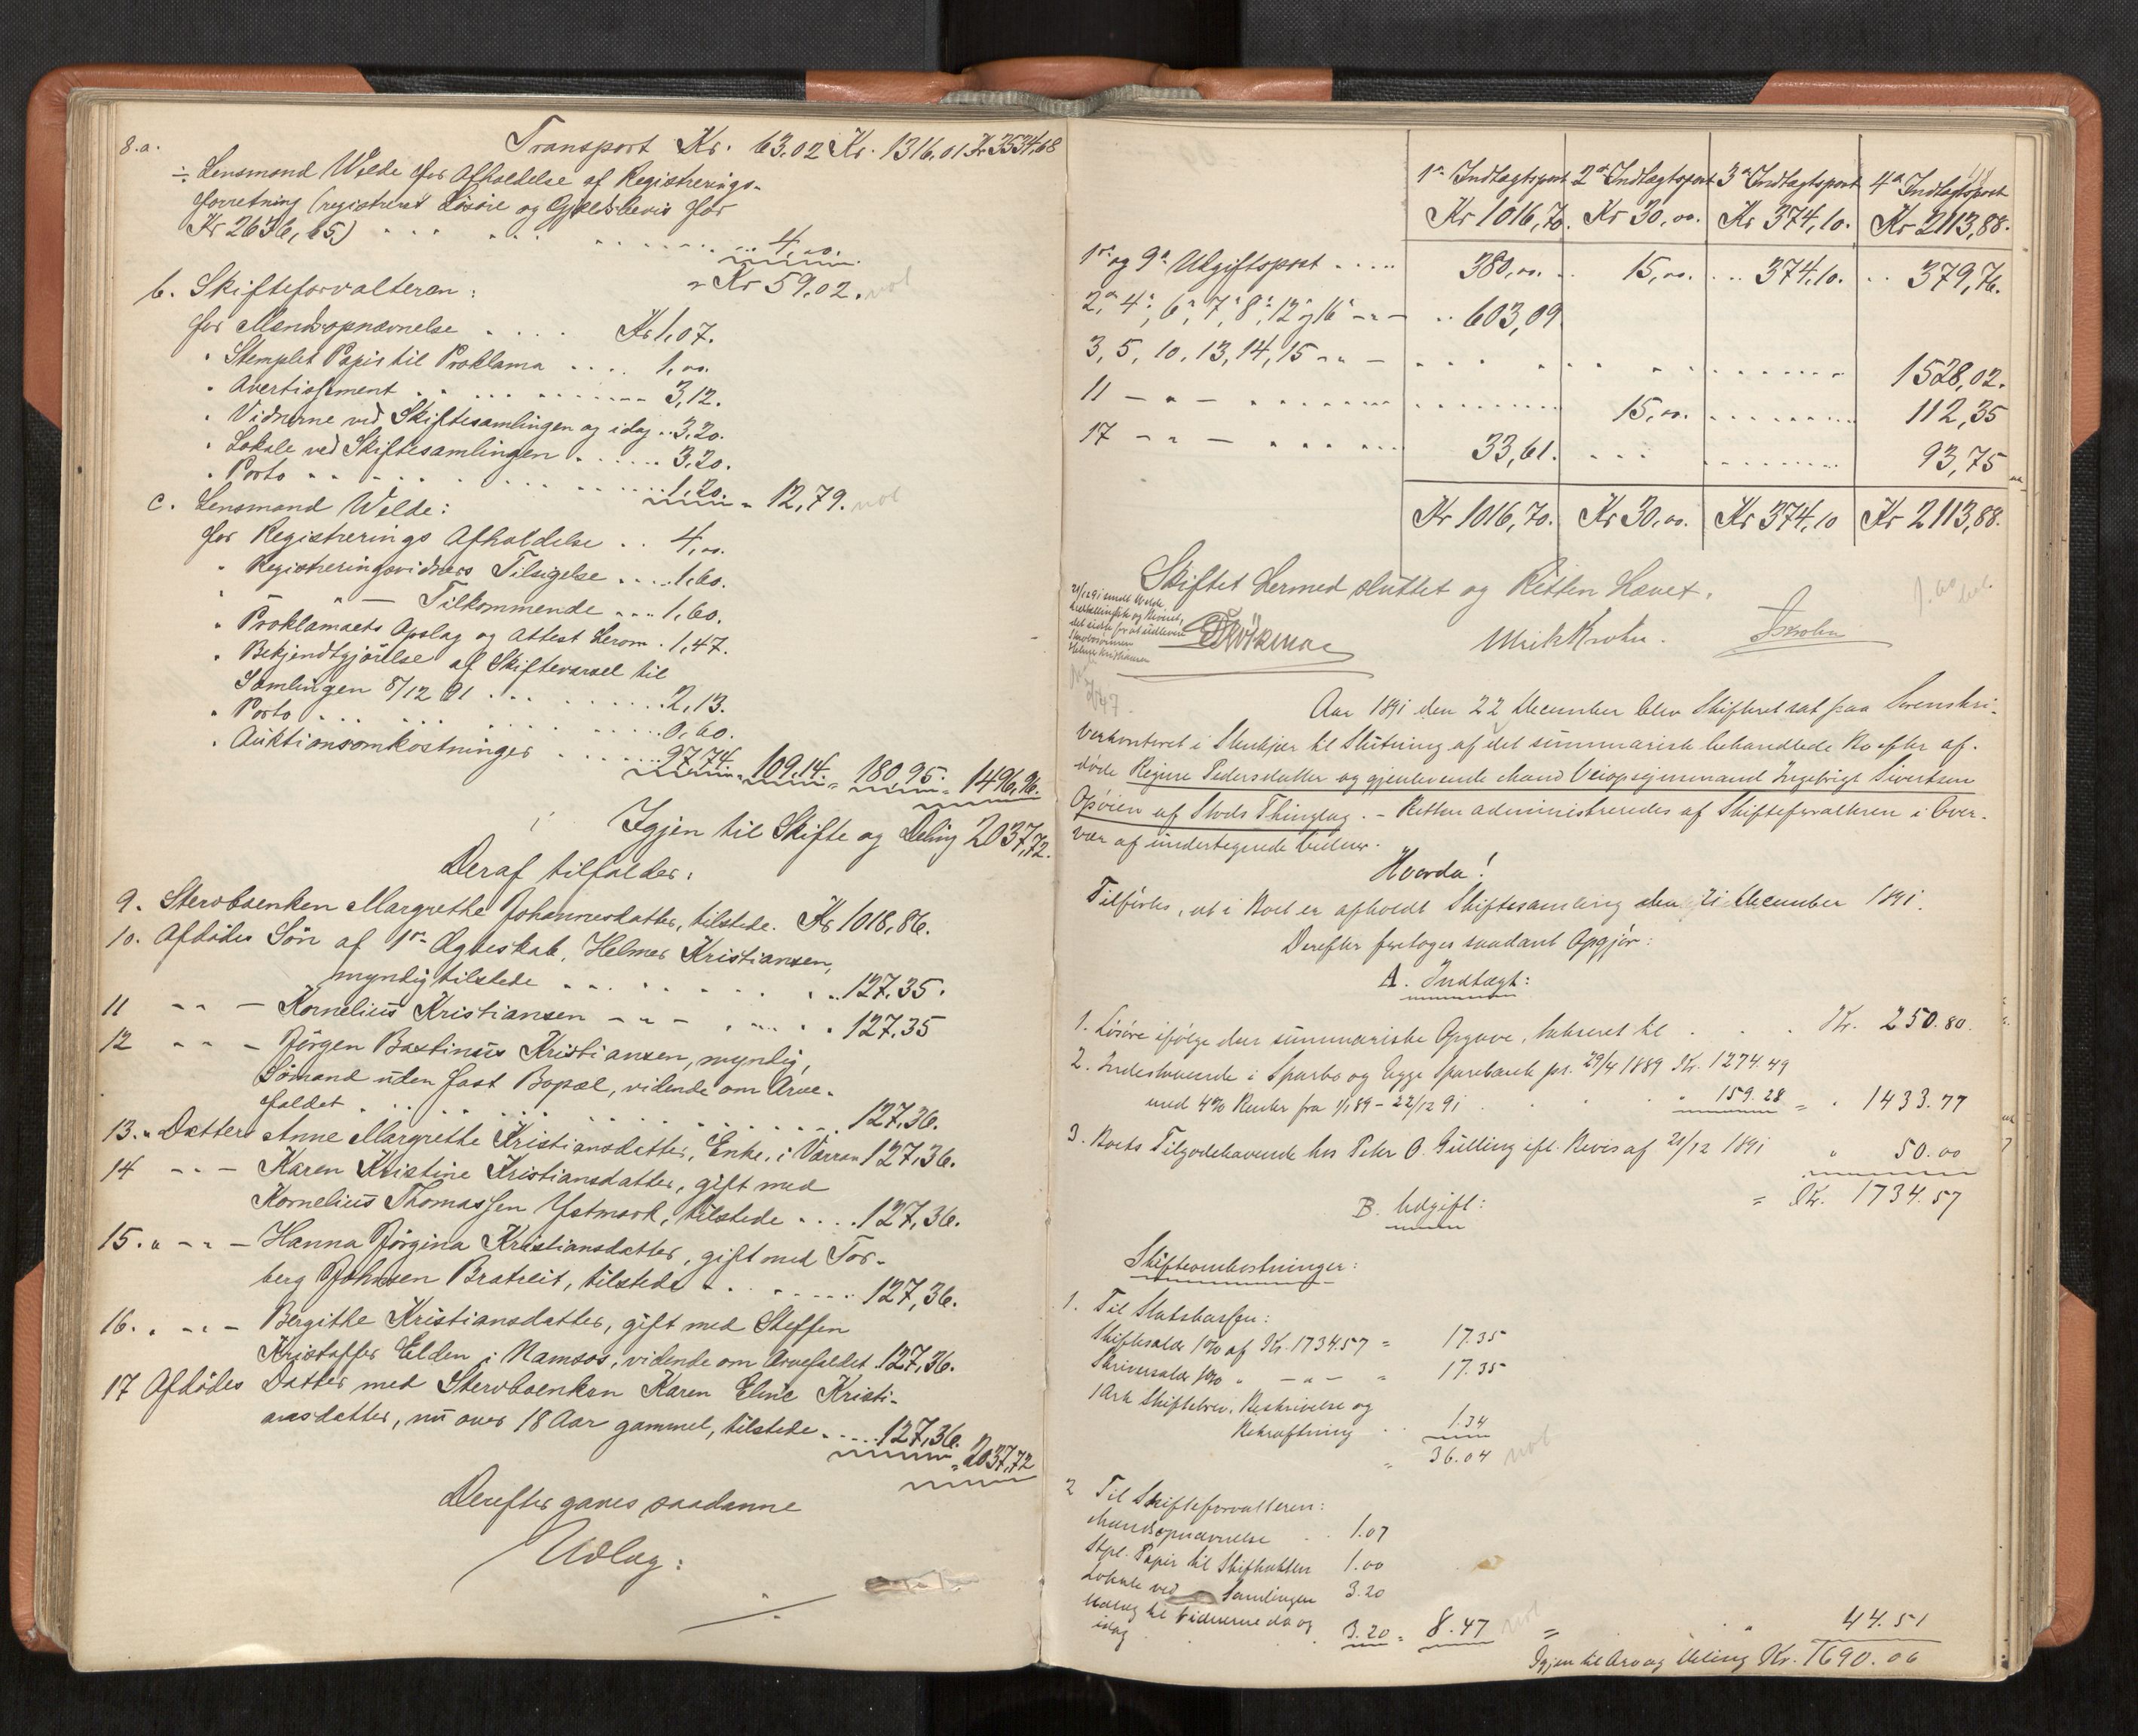 8.a. Transport Kr. 63,02 Kr. 1316,01 Kr 3534,68
÷ Lensmand Welde for Afholdelse af Registrerings-
forretning (registreret Løsøre og Gjældsbevis for
Kr 2636,65) . . . . . . 4,00.
= Kr 59,02. not
b. Skifteforvalteren:
for Mandsopnævnelse . . . . Kr 1,07.
" Stemplet Papir til Proklama . . . . 1,00.
" Avertissement . . . . . . 3,12.
" Vidnerne ved Skiftesamlingen og idag . . 3,20.
" Lokale ved Skiftesamlingen . . . . . 3,20.
" Porto . . . . . . 1,20. = 12,79. not
c. Lensmand Welde:
for Registrerings Afholdelse . . 4,00.
" Registreringsvidners Tilsigelse . . . . 1,60.
" " — Tilkommende . . . 1,60.
" Proklamaets Opslag og Attest herom . 1,47.
" Bekjendtgjørelse af Skiftevarsel til
Samlingen 8/12 91 . . . . . . 2,13.
" Porto . . . . . . 0,60.
" Auktionsomkostninger . . . . . 97,74. = 109,14. = 180,95. = 1496,96.
Igjen til Skifte og Deling 2037,72.
Deraf tilfalder:
9. Stervboenken Margrethe Johannesdatter, tilstede. Kr 1018,86.
10. Afdødes Søn af 1ste Ægteskab, Helmer Kristiansen,
myndig, tilstede . . . . . . 127,35.
11 - " - Kornelius Kristiansen - " - . . . . 127,35
12 - " - Jørgen Bastinus Kristiansen, myndig,
Sømand uden fast Bopæl, vidende om Arve-
faldet . . . . . . 127,36.
13. " Datter Anne Margrethe Kristiansdatter, Enke, i Varran 127,36.
14 - " - Karen Kristine Kristiansdatter, gift med
Kornelius Thomassen Ystmark, tilstede . . . . 127,36.
15. " - " - Hanna Jørgina Kristiansdatter, gift med Tor-
berg Johnsen Bratreit, tilstede . . . . . . 127,36.
16. " - " - Bergithe Kristiansdatter, gift med Steffen
Kristoffer Elden i Namsos, vidende om Arvefaldet. 127,36.
17 Afdødes Datter med Stervboenken Karen Eline Kristi-
ansdatter, nu over 18 Aar gammel, tilstede . . . . 127,36. = 2037,72
Derefter gaves saadanne
Udlæg:
1ste Indtægtspost 2den Indtægtspost 3die Indtægtspost 4de Indtægtspost
Kr 1016,70. Kr 30,00. Kr 374,10. Kr 2113,88.
1ste og 9de Udgiftspost . . . . . 380,00. . . 15,00. . . 374,10. . . 379,76.
2den, 4de, 6te, 7de, 8de, 12te og 16de - " - . . 603,09
3, 5, 10, 13, 14, 15 - " - . . . . . . 1528,02.
11 - " - . . . . . . 15,00. . . . . . . 112,35
17 - " - . . . . . . 33,61. . . . . . . 93,75
Kr 1016,70. Kr 30,00. Kr 374,10 Kr 2113,88.
Skiftet hermed sluttet og Retten hævet.
Ulrik Krohn.
Aar 1891 den 22 December blev Skifteret sat paa Sorenskri-
verkontoret i Stenkjær til Slutning af det summarisk behandlede Bo efter af-
døde Regine Pedersdatter og gjenlevende Mand Veiopsynsmand Ingebrigt Sivertsen
Opøien af Stods Thinglag. - Retten administreredes af Skifteforvalteren i Over-
vær af undertegnede Vidner.
Hvorda!
Tilførtes, at i Boet er afholdt Skiftesamling den 21 December 1891.
Derefter foretoges saadant Opgjør:
A. Indtægt:
1. Løsøre ifølge den summariske Opgave, takseret til . . . Kr. 250.80.
2. Indestaaende i Sparbo og Egge Sparebank pr. 29/4 1889 Kr. 1274.49
med 4% Renter fra 1/1 89 - 22/12 91 . . . " 159.28 = " 1433.77
3. Boets Tilgodehavende hos Peter O. Gulling efl. Bevis af 21/12 1891 " 50.00
= Kr. 1734.57
B. Udgift:
Skifteomkostninger:
1. Til Statskassen:
Skiftesalær 1% af Kr. 1734.57 = 17.35
Skriversalær 1% " - " - = 17.35
1 Ark Skiftebrev, Beskrivelse og
Bekræftning . . 1.34
= 36.04 not
2 Til Skifteforvalteren:
Mandsopnævnelse . . 1.07
Stpl. Papir til Skifteakten 1.00
Lokale ved Samlingen 3.20
Udlæg til Vidnerne da og
idag . . 3.20 = 8.47 not = " 44.51
Igjen til Arv og Deling Kr. 1690.06